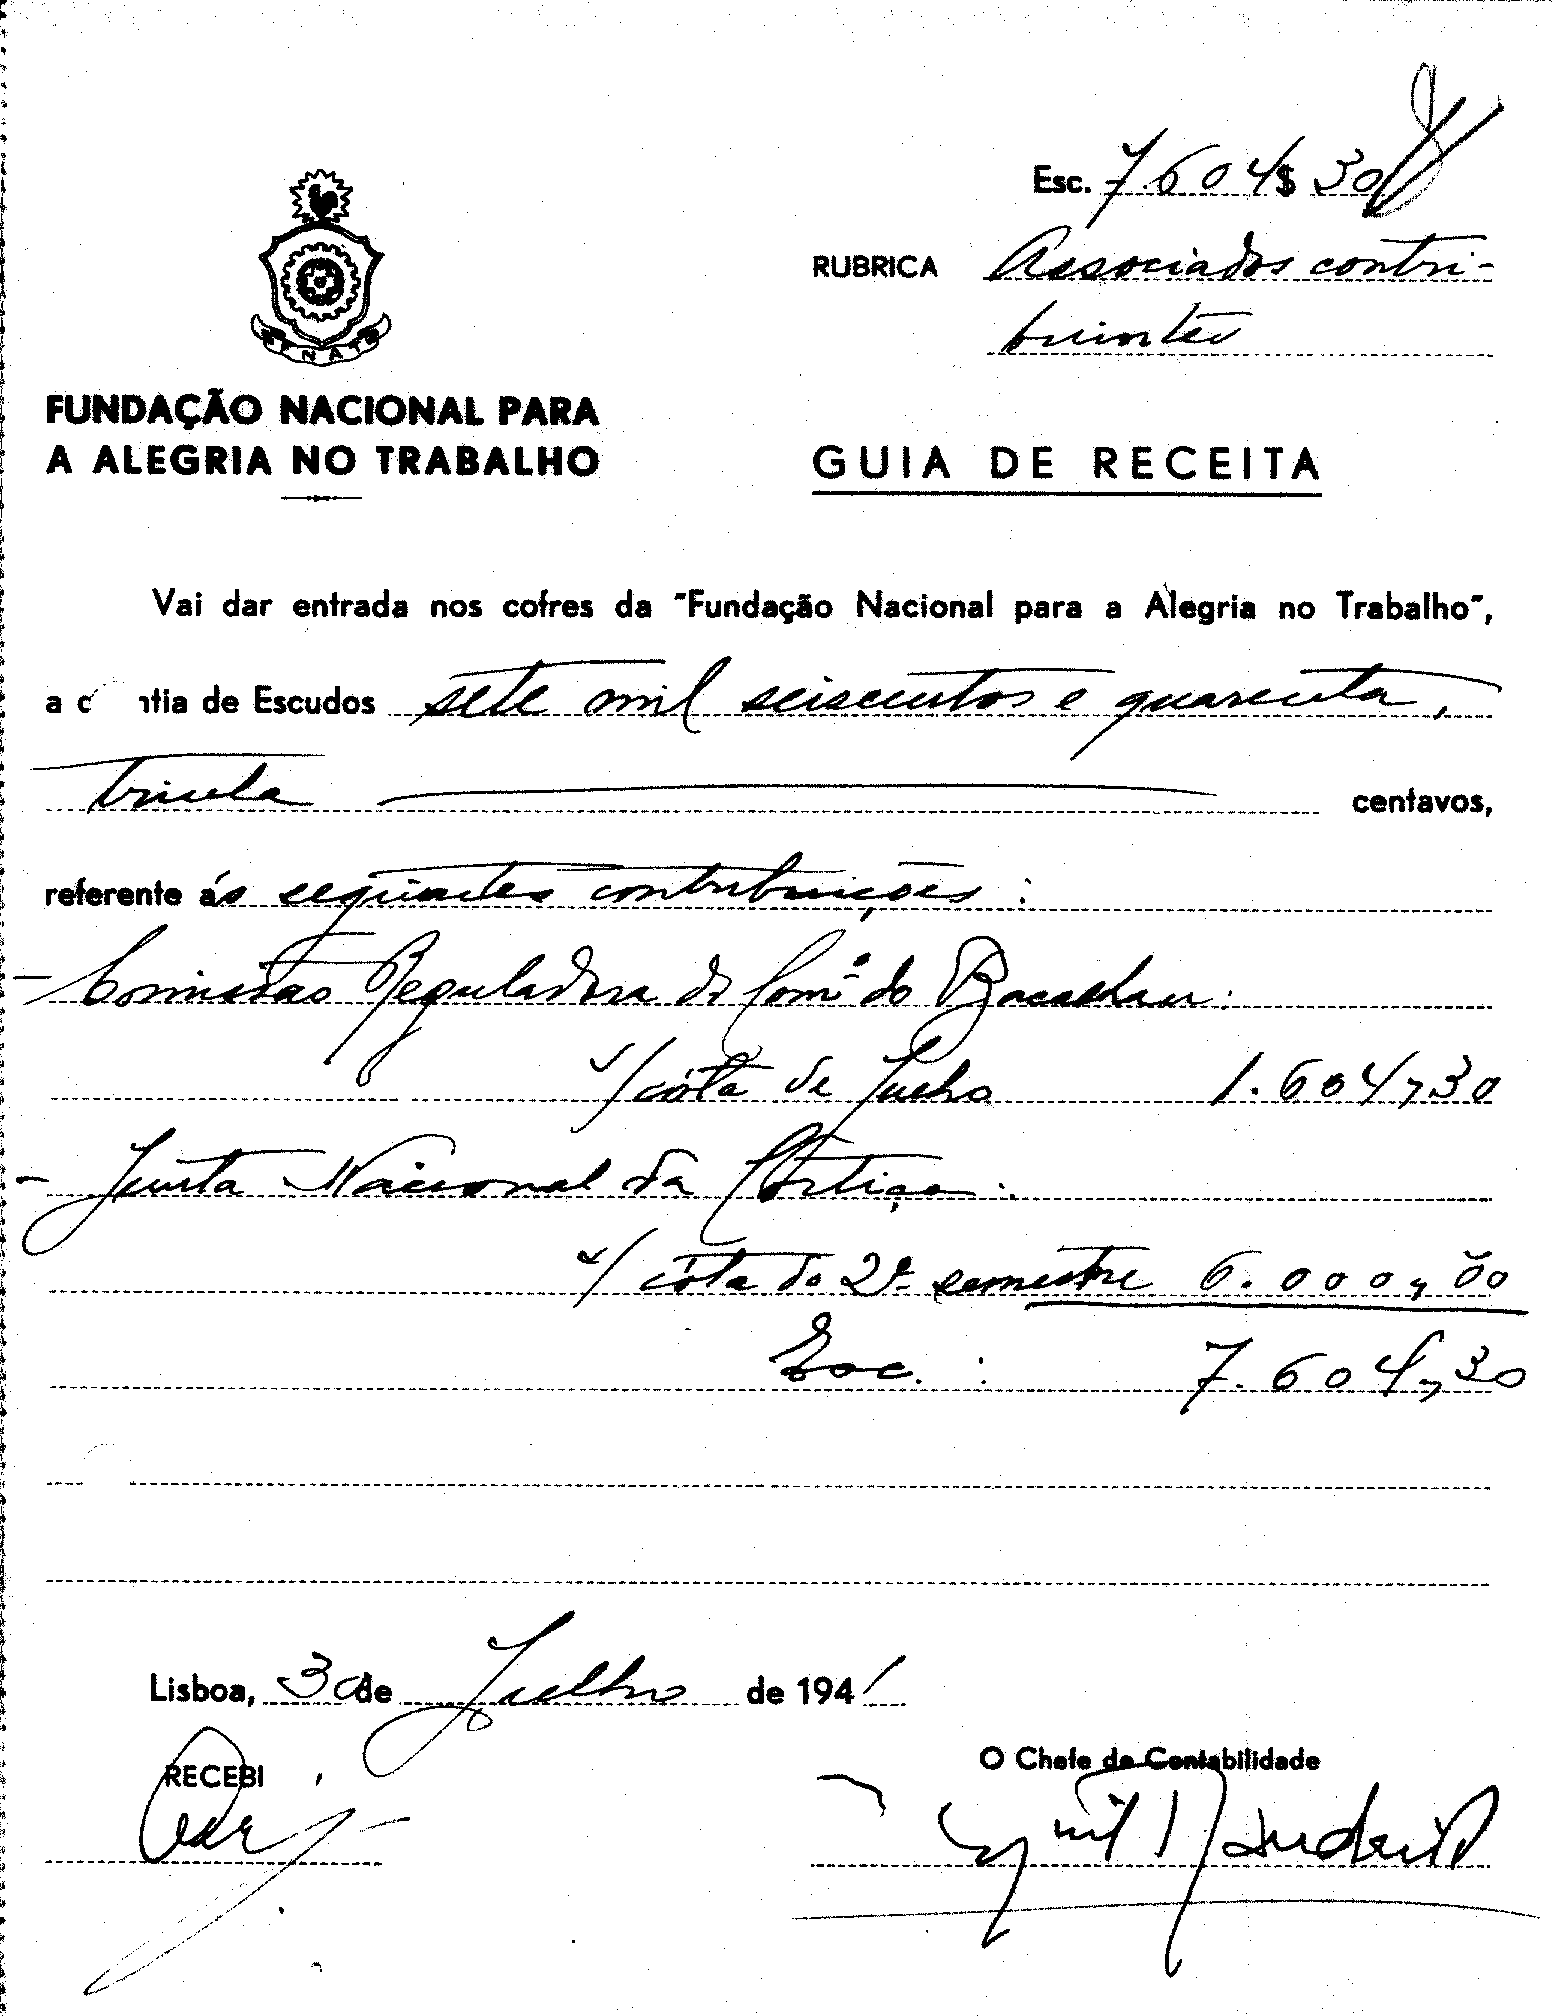 Esc. 7.604$30
RUBRICA Associados contri-
buintes
FNAT
FUNDAÇÃO NACIONAL PARA
A ALEGRIA NO TRABALHO
GUIA DE RECEITA
Vai dar entrada nos cofres da "Fundação Nacional para a Alegria no Trabalho",
a c ntia de Escudos sete mil seiscentos e quarenta,
trinta centavos,
referente ás seguintes contribuições :
- Comissão Reguladora do Com.º do Bacalhau:
s/ cóta de Julho 1.604,30
- Junta Nacional da Cortiça :
s/ cóta do 2º semestre 6.000,00
Esc. : 7.604,30
Lisboa, 30 de Julho de 1941
RECEBI
O Chefe da Contabilidade